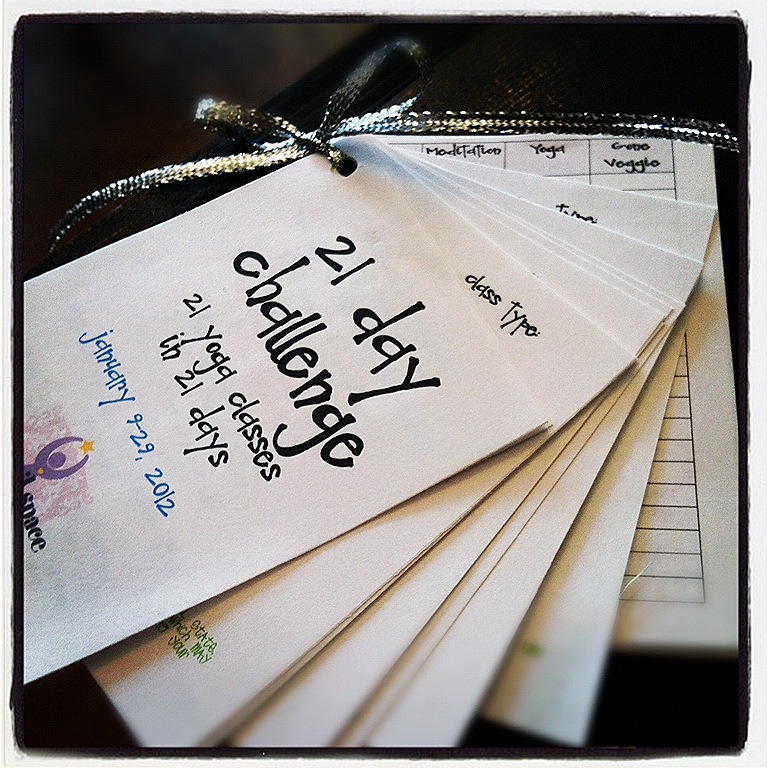 21 day
challenge
21 yoga classes
in 21 days
january 9-29, 2012
space
class type:
type:
Meditation Yoga Gone
Veggie
state
which may
your